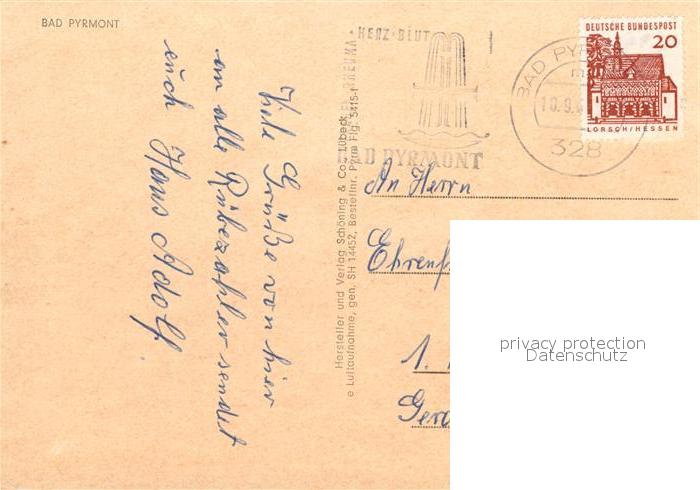 BAD PYRMONT
Viele Grüße von hier
an alle Rübezahler sendet
euch Hans Adolf.
Hersteller und Verlag Schöning & Co., Lübeck
e Luftaufnahme, gen. SH 14452, Bestellnr. Pyrm Flg. 5415-1
HERZ · BLUT
RHEUMA
BAD PYRMONT
BAD PY
10.9.6
328
DEUTSCHE BUNDESPOST
20
LORSCH/HESSEN
An Herrn
Ehrenf
1.
Gero
privacy protection
Datenschutz